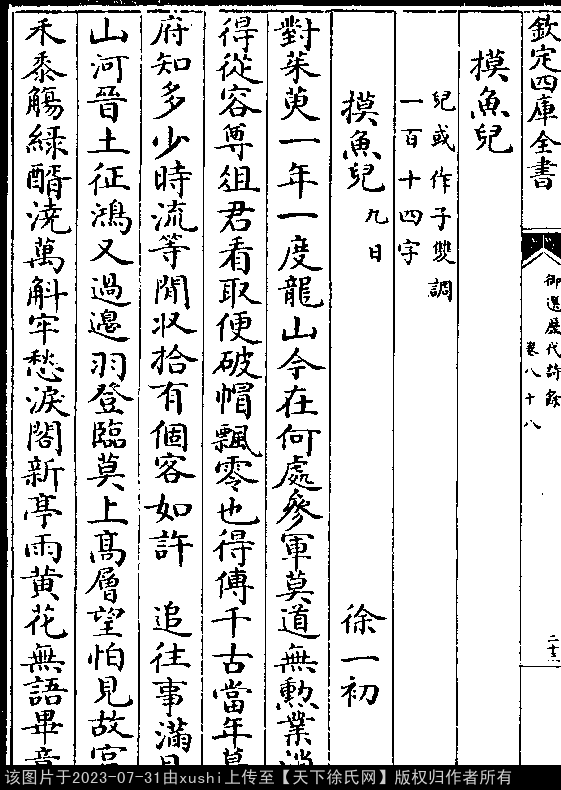 欽定四庫全書
御選歷代詩餘
卷八十八
摸魚兒
兒或作子雙調
一百十四字
摸魚兒 九日 徐一初
對茱萸一年一度龍山今在何處參軍莫道無勲業消
得從容尊俎君看取便破帽飄零也得傳千古當年幕
府知多少時流等閒收拾有個客如許 追往事滿目
山河晉土征鴻又過邊羽登臨莫上髙層望怕見故宮
禾黍觴綠醑澆萬斛牢愁淚閣新亭雨黃花無語畢竟
该图片于2023-07-31由xushi上传至【天下徐氏网】版权归作者所有